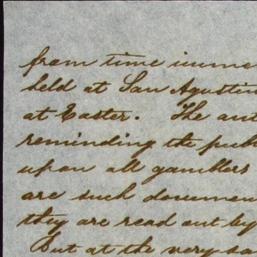 from time imme
held at San Agustin
at Easter. The aut
reminding the publ
upon all gamblers
are such documen
they are read out by
But at the very sa